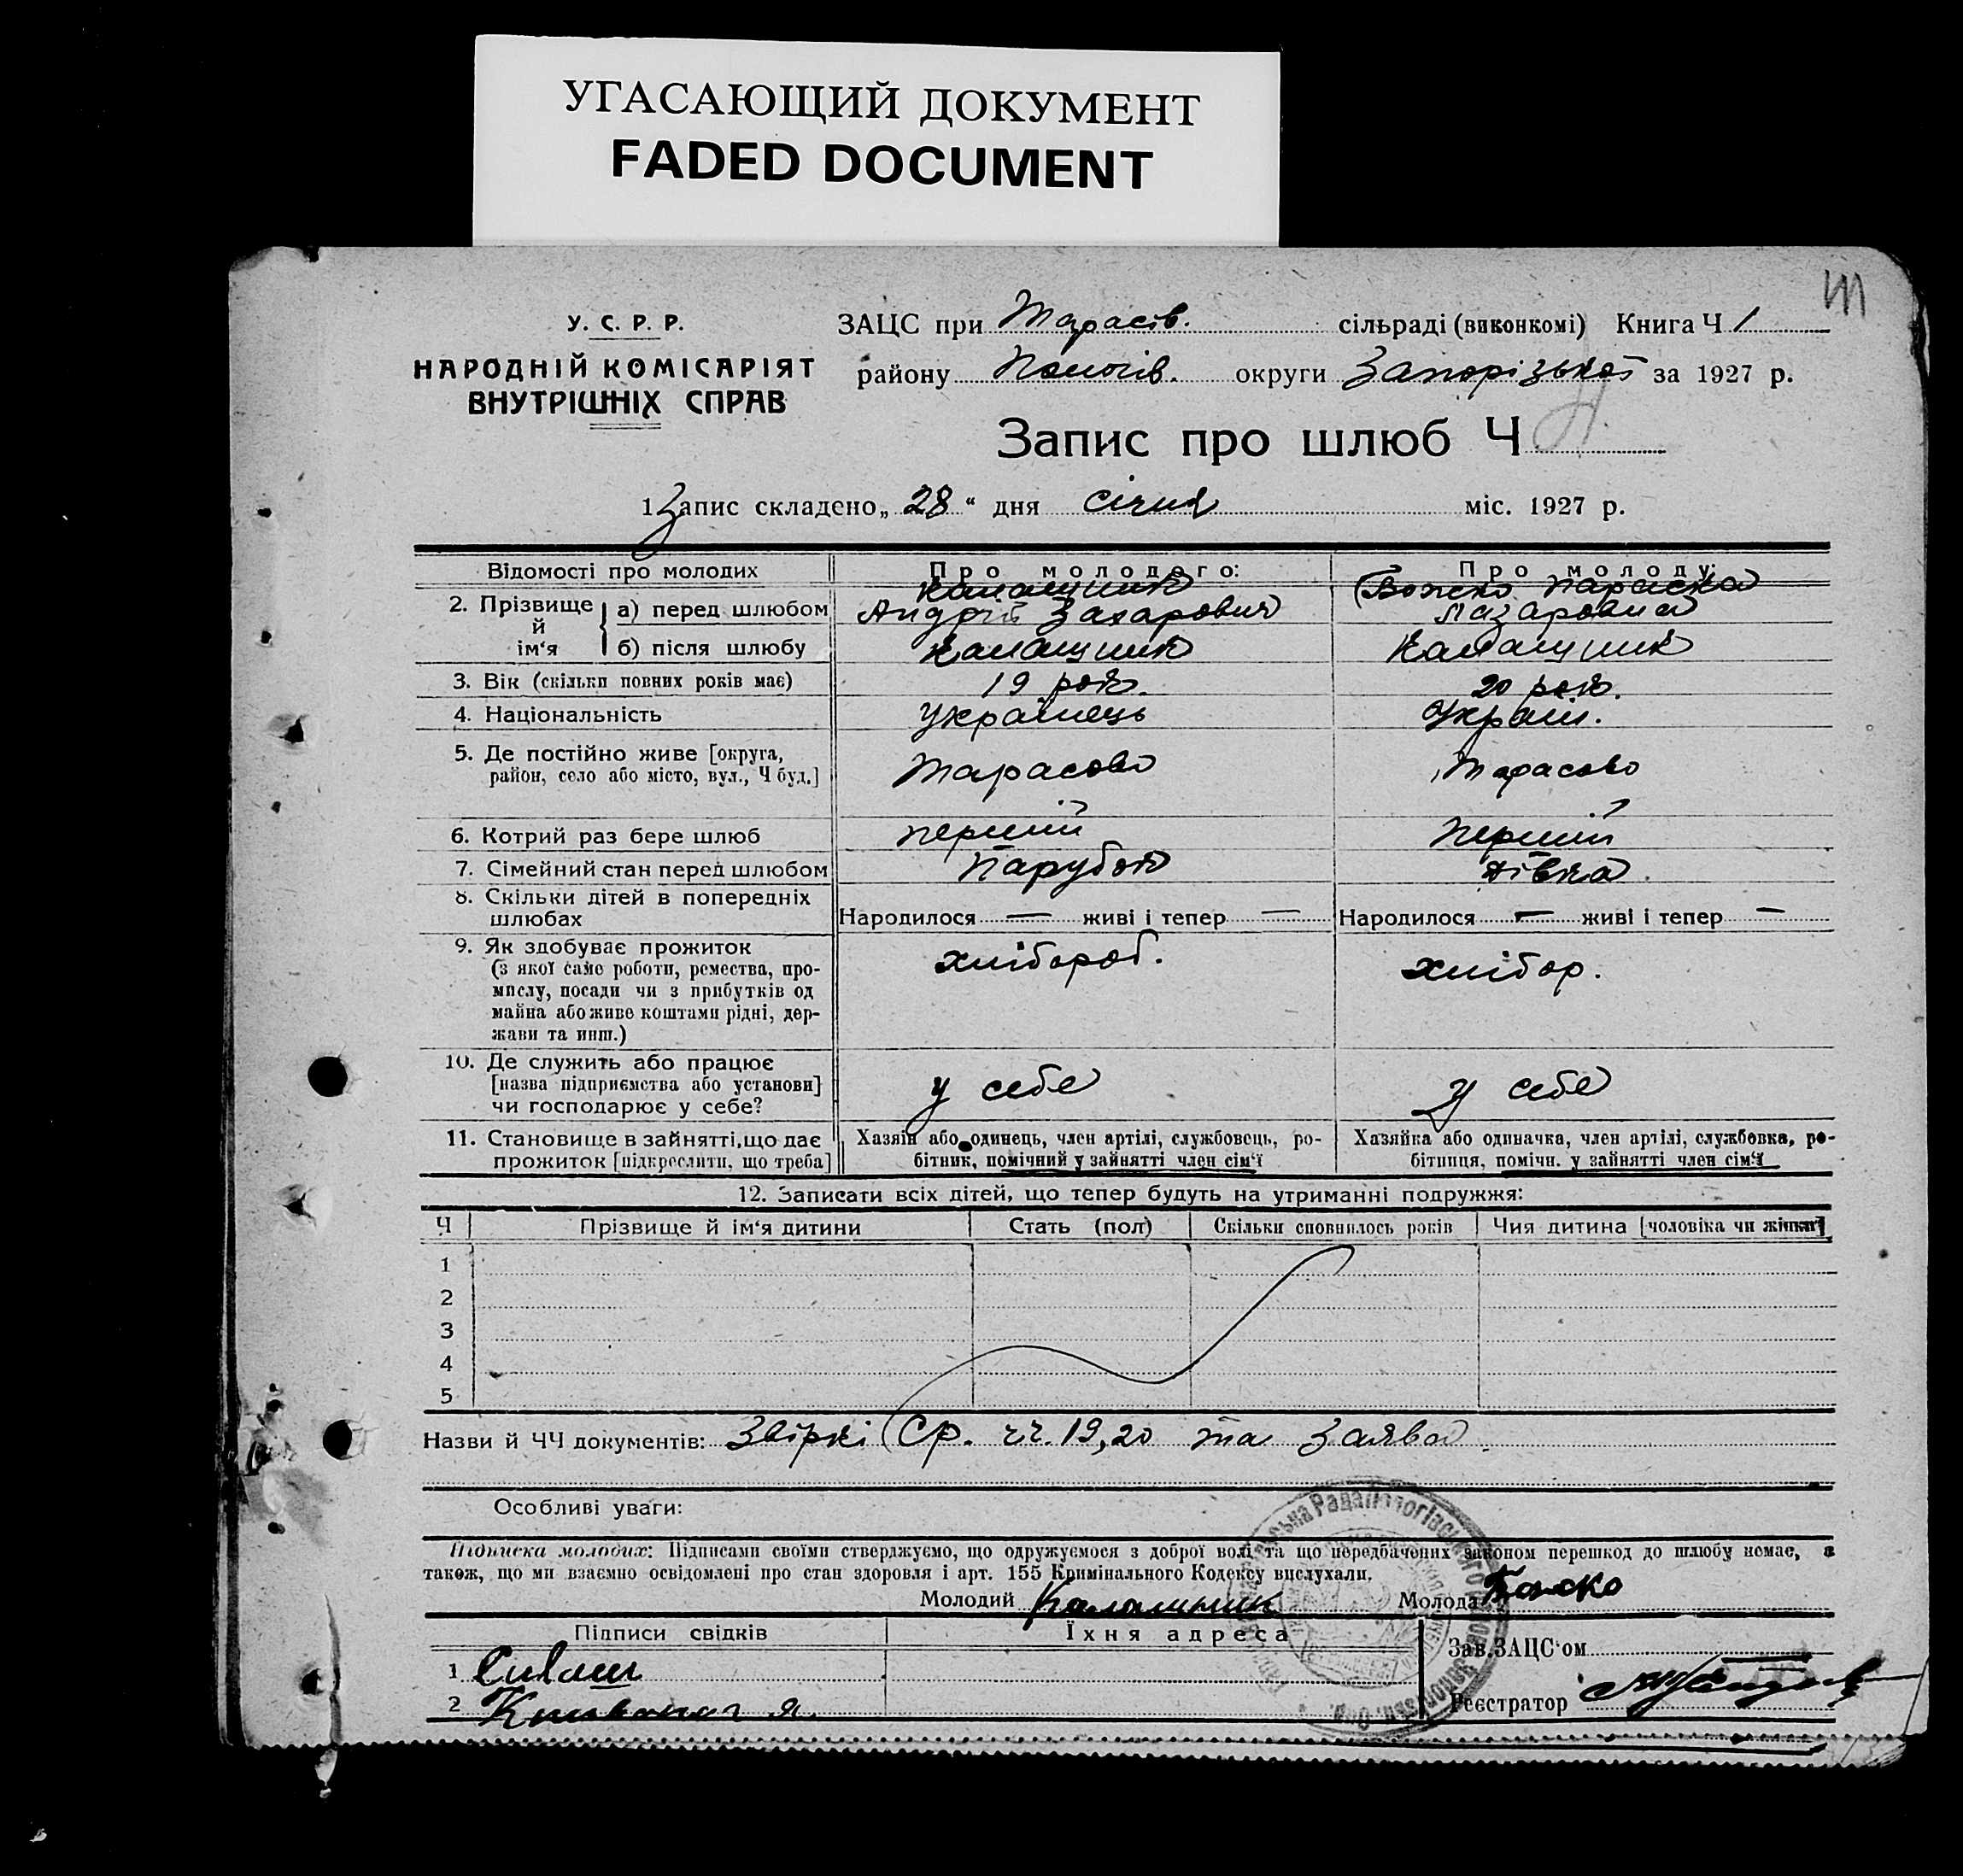 УГАСАЮЩИЙ ДОКУМЕНТ
FADED DOCUMENT
У. С. Р. Р.
НАРОДНІЙ КОМІСАРІЯТ
ВНУТРІШНІХ СПРАВ
ЗАЦС при Тарасів. сільраді (виконкомі) Книга Ч 1
району Пологів. округи Запорізької за 1927 р.
Запис про шлюб Ч
1 Запис складено „28“ дня січня міс. 1927 р.
Відомості про молодих Про молодого: Про молоду:
2. Прізвище й ім‘я
а) перед шлюбом Калашник Андрій Захарович Божко Параска Лазаровна
б) після шлюбу Калашник Калашник
3. Вік (скільки повних років має) 19 рок. 20 рок.
4. Національність Українець Україн.
5. Де постійно живе [округа, Тарасово Тарасово
район, село або місто, вул., Ч буд.]
6. Котрий раз бере шлюб перший перший
7. Сімейний стан перед шлюбом Парубок дівка
8. Скільки дітей в попередніх
шлюбах Народилося — живі і тепер — Народилося — живі і тепер —
9. Як здобуває прожиток хлібороб. хлібор.
(з якої саме роботи, ремества, про-
мислу, посади чи з прибутків од
майна або живе коштами рідні, дер-
жави та инш.)
10. Де служить або працює
[назва підприємства або установи] у себе у себе
чи господарює у себе?
11. Становище в зайнятті, що дає Хазяїн або одинець, член артілі, службовець, ро- Хазяйка або одиначка, член артілі, службовка, ро-
прожиток [підкреслити, що треба] бітник, помічний у зайнятті член сім‘ї бітниця, помічн. у зайнятті член сім‘ї
12. Записати всіх дітей, що тепер будуть на утриманні подружжя:
Ч Прізвище й ім‘я дитини Стать (пол) Скільки сповнилось років Чия дитина [чоловіка чи жінки]
1
2
3
4
5
Назви й ЧЧ документів: Звіркі Ср. чч. 19, 20 та Заява
Особливі уваги:
Підписка молодих: Підписами своїми стверджуємо, що одружуємося з доброї волі та що передбачених законом перешкод до шлюбу немає, а
також, що ми взаємно освідомлені про стан здоровля і арт. 155 Кримінального Кодексу вислухали.
Молодий Калашник Молода Божко
Підписи свідків Їхня адреса Зав. ЗАЦС‘ом
1 Сиваш
2 Реєстратор